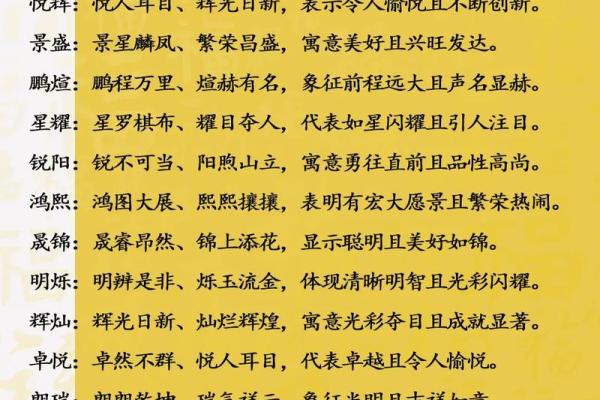 悦辉：悦人耳目、辉光日新，表示令人愉悦且不断创新。
景盛：景星麟凤、繁荣昌盛，寓意美好且兴旺发达。
鹏煊：鹏程万里、煊赫有名，象征前程远大且声名显赫。
星耀：星罗棋布、耀目夺人，代表如星闪耀且引人注目。
锐阳：锐不可当、阳煦山立，寓意勇往直前且品性高尚。
鸿熙：鸿图大展、熙熙攘攘，表明有宏大愿景且繁荣热闹。
晟锦：晟睿昂然、锦上添花，显示聪明且美好如锦。
明烁：明辨是非、烁玉流金，体现清晰明智且光彩闪耀。
辉灿：辉光日新、灿烂辉煌，寓意光彩夺目且成就显著。
卓悦：卓然不群、悦人耳目，代表卓越且令人愉悦。
朗瑞：朗朗乾坤、瑞气祥云，象征光明且吉祥如意。